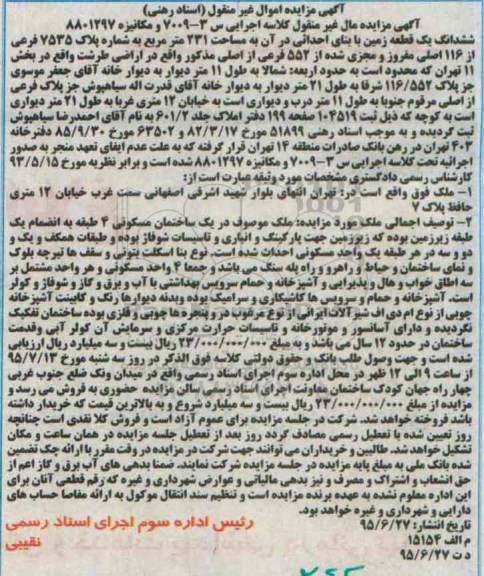 آگهی مزایده اموال غیر منقول (اسناد رهنی)
آگهی مزایده مال غیر منقول کلاسه اجرایی س ۳-۷۰۰۹ و مکانیزه ۸۸۰۱۲۹۷
ششدانگ یک قطعه زمین با بنای احداثی در آن به مساحت ۲۳۱ متر مربع به شماره پلاک ۷۵۳۵ فرعی
از ۱۱۶ اصلی مفروز و مجزی شده از ۵۵۲ فرعی از اصلی مذکور واقع در اراضی طرشت واقع در بخش
۱۱ تهران که محدود است به حدود اربعه: شمالا به طول ۱۱ متر دیوار به دیوار خانه آقای جعفر موسوی
جز پلاک ۱۱۶/۵۵۲ شرقا به طول ۲۱ متر دیوار به دیوار خانه آقای قدرت اله سیاهپوش جز پلاک فرعی
از اصلی مرقوم جنوبا به طول ۱۱ متر درب و دیواری است به خیابان ۱۲ متری غربا به طول ۲۱ متر دیواری
است به کوچه که ذیل ثبت ۱۰۴۵۱۹ صفحه ۱۹۹ دفتر املاک جلد ۶۰۱/۲ به نام آقای احمدرضا سیاهپوش
ثبت گردیده و به موجب اسناد رهنی ۵۱۸۹۹ مورخ ۸۲/۳/۱۷ و ۶۳۵۰۲ مورخ ۸۵/۹/۳۰ دفترخانه
۴۰۳ تهران در رهن بانک صادرات منطقه ۱۴ تهران قرار گرفته که به علت عدم ایفای تعهد منجر به صدور
اجرائیه تحت کلاسه اجرایی س ۳-۷۰۰۹ و مکانیزه ۸۸۰۱۲۹۷ شده است و برابر نظریه مورخ ۹۳/۵/۱۵
کارشناس رسمی دادگستری مشخصات مورد وثیقه عبارت است از:
۱- ملک فوق واقع است در: تهران انتهای بلوار شهید اشرفی اصفهانی سمت غرب خیابان ۱۲ متری
حافظ پلاک ۷
۲- توصیف اجمالی ملک مورد مزایده: ملک موصوف در یک ساختمان مسکونی ۴ طبقه به انضمام یک
طبقه زیرزمین بوده که زیرزمین جهت پارکینگ و انباری و تاسیسات شوفاژ بوده و طبقات همکف و یک و
دو و سه در هر طبقه یک واحد مسکونی احداث شده است. نوع بنا اسکلت بتونی و سقف ها تیرچه بلوک
و نمای ساختمان و حیاط و راهرو و راه پله سنگ می باشد و جمعا ۴ واحد مسکونی و هر واحد مشتمل بر
سه اطاق خواب و هال و پذیرایی و آشپزخانه و حمام سرویس بهداشتی با آب و برق و گاز و شوفاژ و کولر
است. آشپزخانه و حمام و سرویس ها کاشیکاری و سرامیک بوده وبدنه دیوارها رنگ و کابینت آشپزخانه
چوبی از نوع ام دی اف شیرآلات ایرانی از نوع مرغوب در و پنجره ها چوبی و فلزی بوده ساختمان تفکیک
نگردیده و دارای آسانسور و موتورخانه و تاسیسات حرارت مرکزی و سرمایش آن کولر آبی وقدمت
ساختمان در حدود ۱۲ سال می باشد و به مبلغ ۲۳/۰۰۰/۰۰۰/۰۰۰ ریال بیست و سه میلیارد ریال ارزیابی
شده است و جهت وصول طلب بانک و حقوق دولتی کلاسه فوق الذکر در روز سه شنبه مورخ ۹۵/۷/۱۳
از ساعت ۹ الی ۱۲ ظهر در محل اداره سوم اجرای اسناد رسمی واقع در میدان ونک ضلع جنوب غربی
چهار راه جهان کودک ساختمان معاونت اجرای اسناد رسمی سالن مزایده حضوری به فروش می رسد و
مزایده از مبلغ ۲۳/۰۰۰/۰۰۰/۰۰۰ ریال بیست و سه میلیارد شروع و به بالاترین قیمت که خریدار داشته
باشد فروخته خواهد شد. شرکت در جلسه مزایده برای عموم آزاد است و فروش کلا نقدی است چنانچه
روز تعیین شده با تعطیل رسمی مصادف گردد روز بعد از تعطیل جلسه مزایده در همان ساعت و مکان
تشکیل خواهد شد. طالبین و خریداران می توانند جهت شرکت در مزایده در وقت مقرر با ارائه چک تضمین
شده بانک ملی به مبلغ پایه مزایده در جلسه مزایده شرکت نمایند. ضمنا بدهی های آب برق و گاز اعم از
حق انشعاب و اشتراک و مصرف و نیز بدهی مالیاتی و عوارض شهرداری و غیره که رقم قطعی آنان برای
این اداره معلوم نشده به عهده برنده مزایده است و تنظیم سند انتقال موکول به ارائه مفاصا حساب های
دارایی و شهرداری و غیره خواهد بود.
تاریخ انتشار: ۹۵/۶/۲۷
رئیس اداره سوم اجرای اسناد رسمی
نقیبی
م الف ۱۵۱۵۴
د ت ۹۵/۶/۲۷